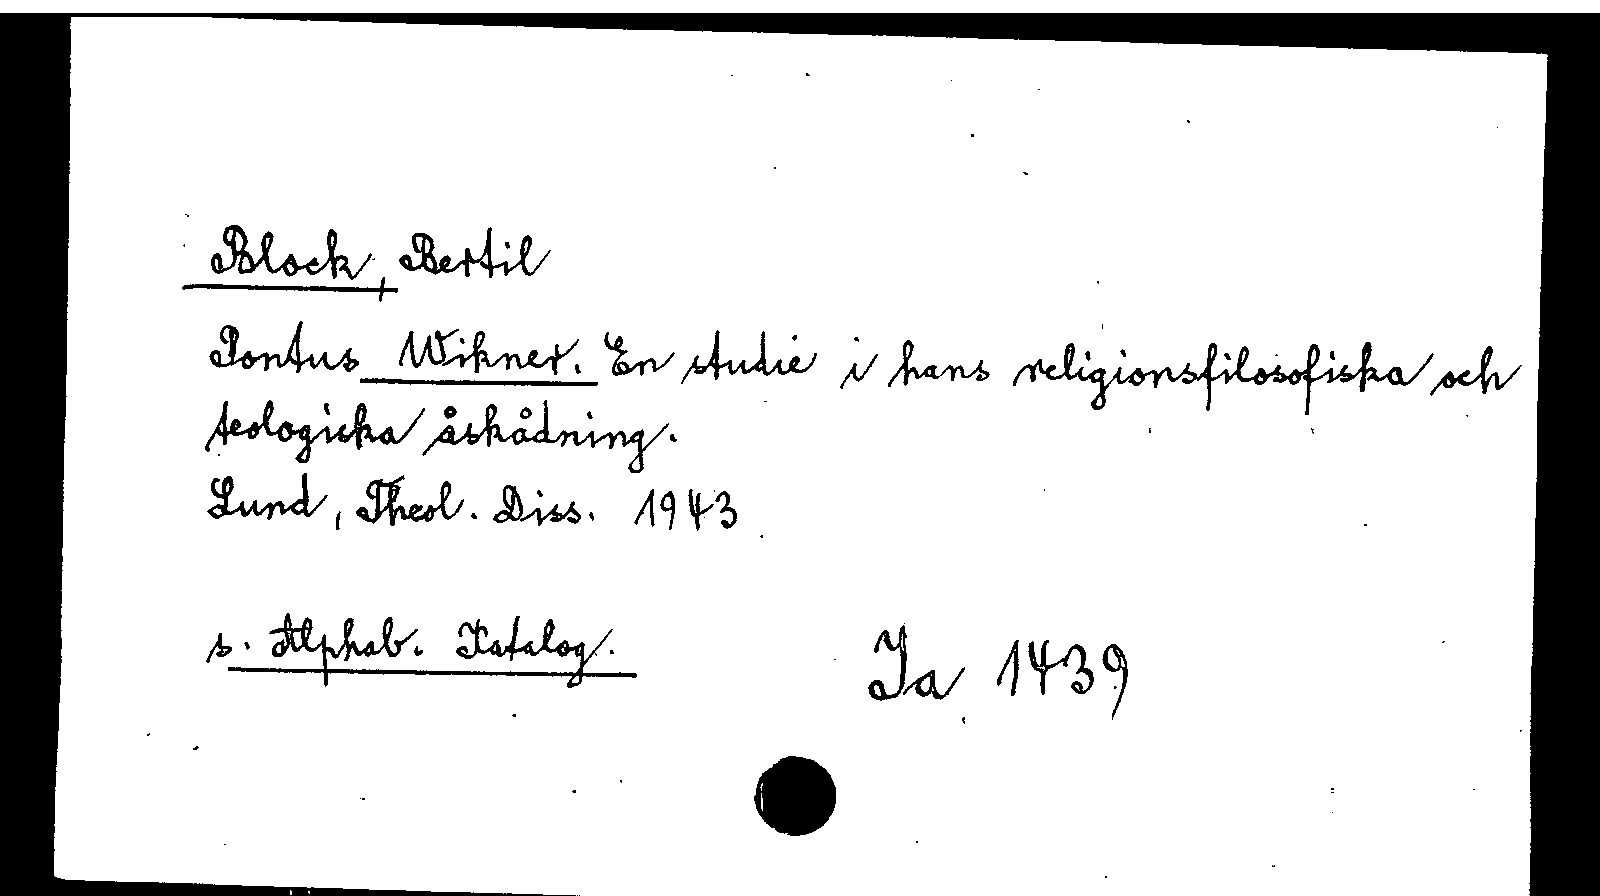 Block, Bertil
Pontus Wikner. En studie i hans religionsfilosofiska och
teologiska åskådning.
Lund, Theol. Diss. 1943
s. Alphab. Katalog.
Ja 1439